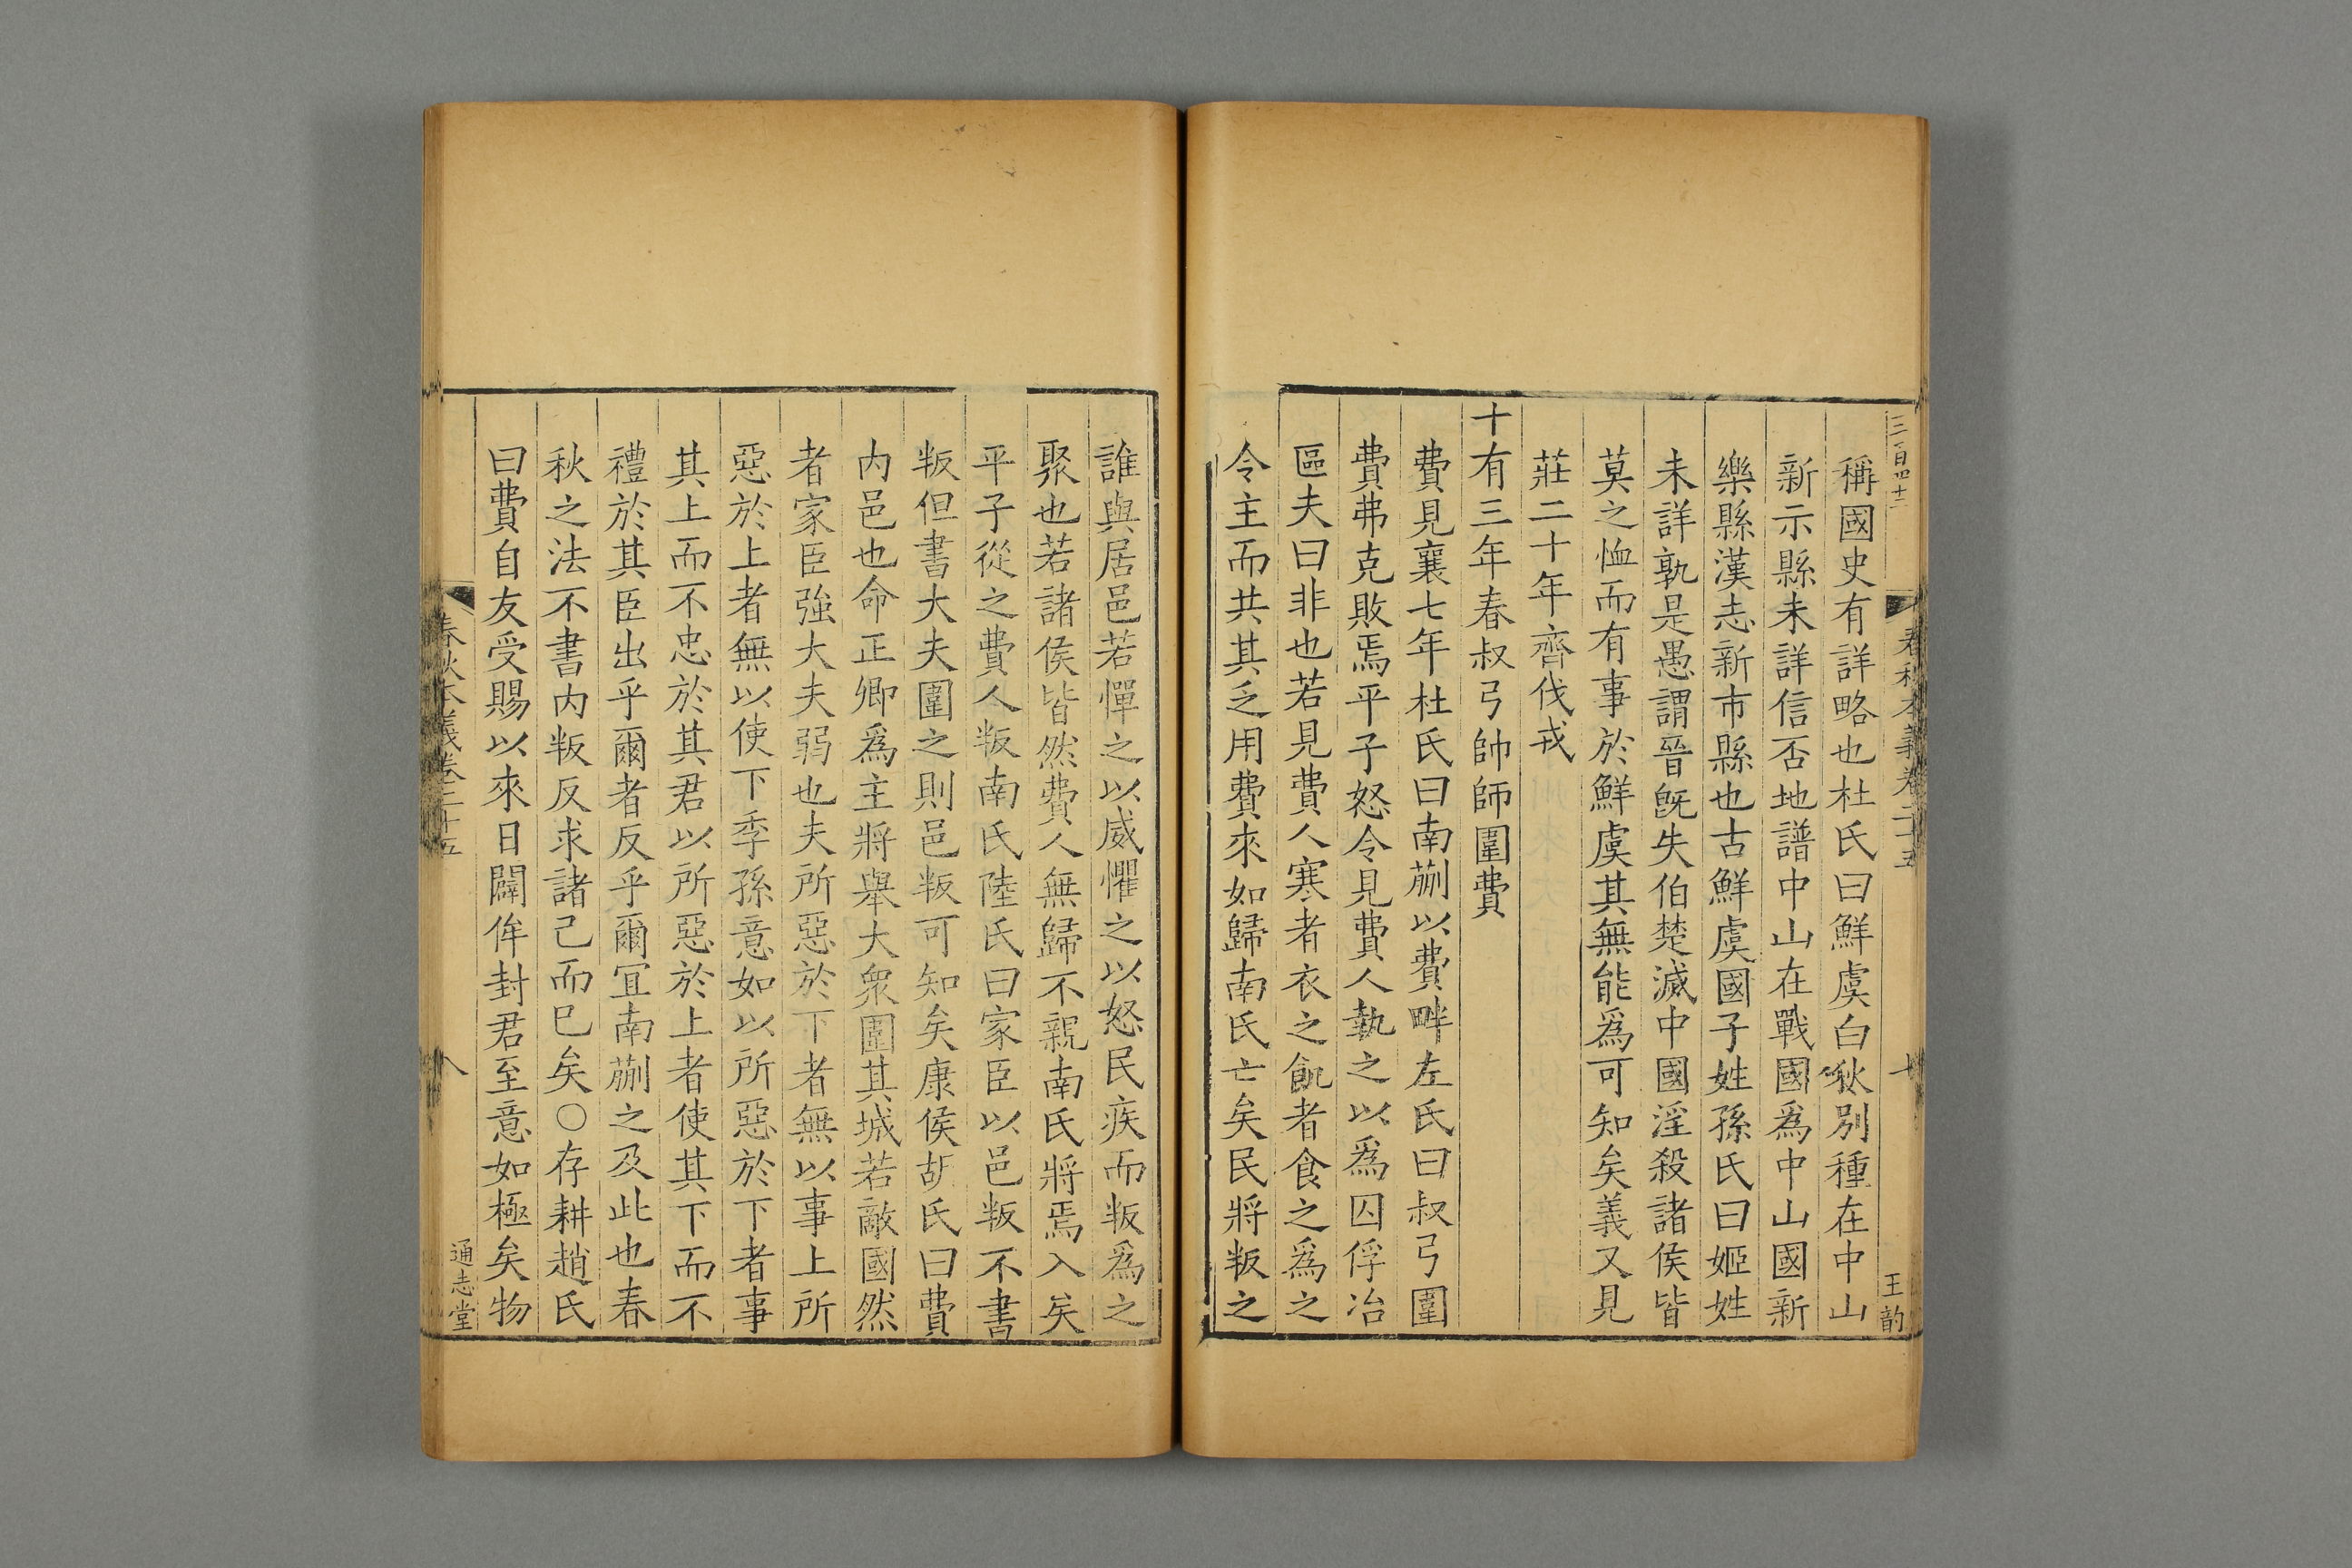 三百四十二
春秋本義卷二十五
七
王的
稱國史有詳略也杜氏曰鮮虞白狄別種在中山
新示縣未詳信否地譜中山在戰國爲中山國新
樂縣漢志新市縣也古鮮虞國子姓孫氏曰姬姓
未詳孰是愚謂晉旣失伯楚滅中國淫殺諸侯皆
莫之恤而有事於鮮虞其無能爲可知矣義又見
莊二十年齊伐戎
十有三年春叔弓帥師圍費
費見襄七年杜氏曰南蒯以費畔左氏曰叔弓圍
費弗克敗焉平子怒令見費人執之以爲囚俘冶
區夫曰非也若見費人寒者衣之飢者食之爲之
令主而共其乏用費來如歸南氏亡矣民將叛之
誰與居邑若憚之以威懼之以怒民疾而叛爲之
聚也若諸侯皆然費人無歸不親南氏將焉入矣
平子從之費人叛南氏陸氏曰家臣以邑叛不書
叛但書大夫圍之則邑叛可知矣康侯胡氏曰費
內邑也命正卿爲主將舉大衆圍其城若敵國然
者家臣強大夫弱也夫所惡於下者無以事上所
惡於上者無以使下季孫意如以所惡於下者事
其上而不忠於其君以所惡於上者使其下而不
禮於其臣出乎爾者反乎爾宜南蒯之及此也春
秋之法不書內叛反求諸己而已矣○存耕趙氏
曰費自友受賜以來日闢侔封君至意如極矣物
春秋本義卷二十五
八
通志堂